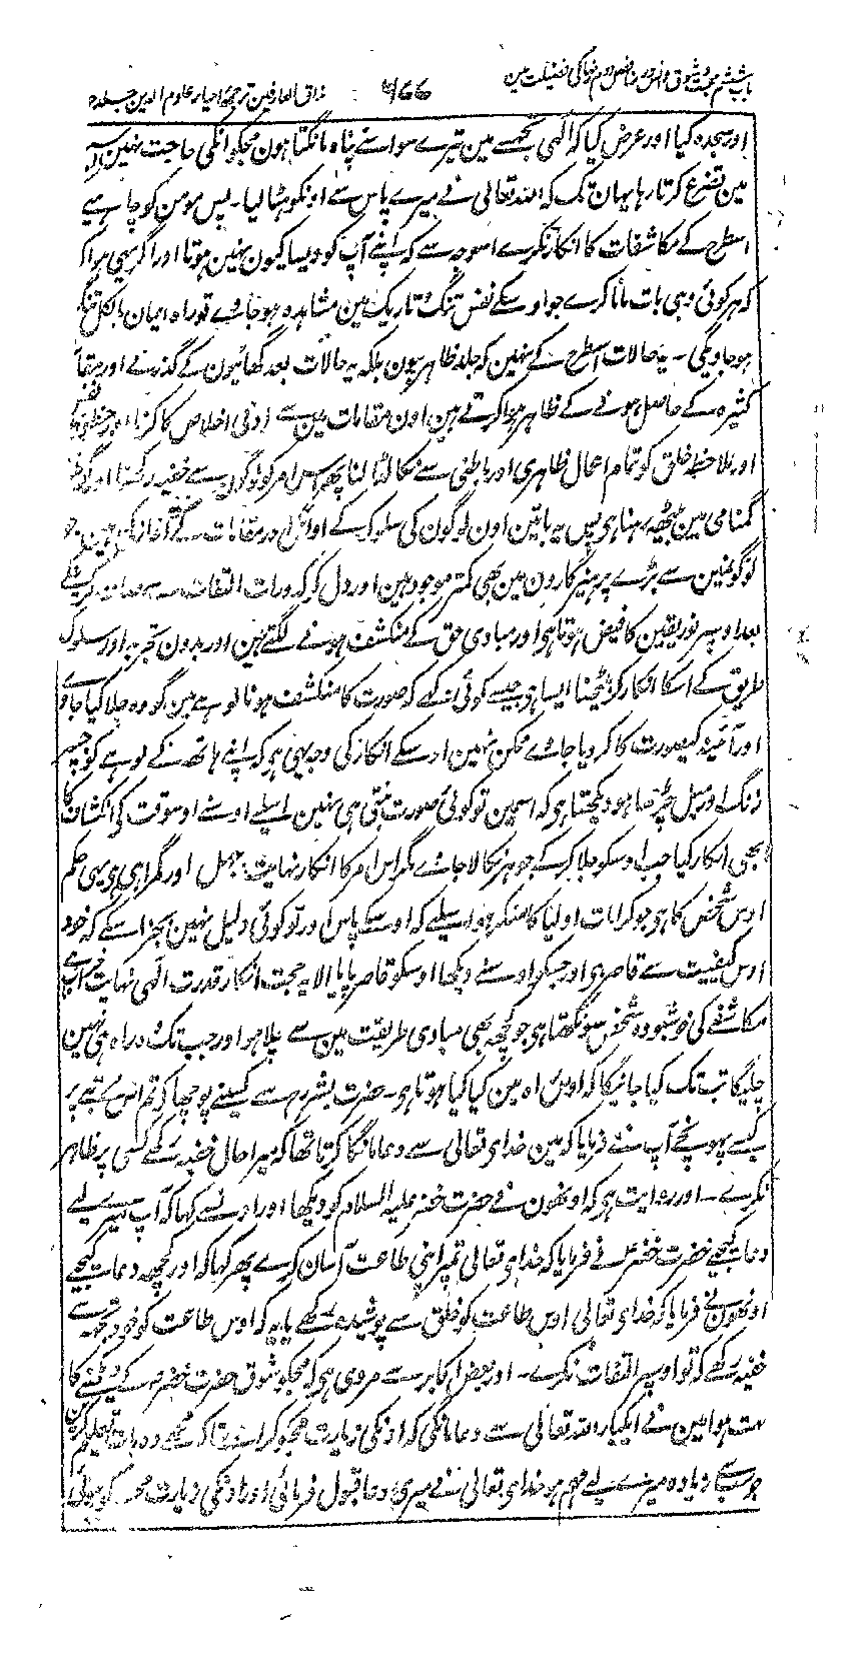 باب ششم محبت و شوق و انس و رضا فصل دوم رضا کی فضیلت مین
۴۷۷
مذاق العارفین ترجمۂ احیاء علوم الدین جلد
اور سجدہ کیا اور عرض کیا کہ الٰہی تجھسے مین تیرے سوا سے پناہ مانگتا ہون مجکو انکی حاجت نہین
مین تضرع کرتا رہا یہان تک کہ اللہ تعالیٰ نے میرے پاس سے اونکو ہٹا لیا۔ پس مومن کو چاہیے
اسطرح کے مکاشفات کا انکار نکرے اسوجہ سے کہ اپنے آپ کو ویسا کیون نہین ہوتا اور اگر یہی ہو کہ
کہ ہر کوئی وہی بات مانا کرے جو اوسکے نفس تنگ و تاریک مین مشاہدہ ہو جاوے تو راہ ایمان بالکل تنگ
ہو جاویگی۔ یہ حالات اسطرح کے نہین کہ جلد ظاہر ہون بلکہ یہ حالات بعد گھاٹیون کے گذرنے اور مقامات
کثیرہ کے حاصل ہونے کے ظاہر ہوا کرتے ہین اون مقامات مین سے ادنیٰ اخلاص کا کرنا اور حظ نفس
اور ملاحظۂ خلق کو تمام اعمال ظاہری اور باطنی سے نکالنا پھر اس امر کو لوگون سے خفیہ رکھنا اور گوشۂ
گمنامی مین بیٹھہ رہنا ہی پس یہ باتین اون لوگون کی سلوک کے اوائل اور مقامات کے آغاز کی ہین جو
لوگونین سے بڑے پرہیزگارون مین بھی کمتر موجود ہین اور دل کو کدورات التفات سے صاف کرنے کے
بعد اوسپر نور یقین کا فیض ہوتا ہی اور مبادی حق کے منکشف ہونے لگتے ہین اور بدون تجربہ اور سلوک
طریق کے اسکا انکار کر بیٹھنا ایسا ہی جیسے کوئی کہے کہ صورت کا منکشف ہونا لوہے مین گو وہ جلا کیا جاوے
اور آئینہ کیصورت کا کر دیا جاوے ممکن نہین اوسکے انکار کی وجہ یہی ہو کہ اپنے ہاتھہ کے لوہے کو جسپر
زنگ اور میل چڑھا ہو دیکھتا ہی کہ اسمین تو کوئی صورت بنتی ہی نہین اسلیے اوسنے اوسوقت کی انکشاف کا
بھی انکار کیا جب اوسکو جلا کر کے جوہر نکالا جاوے مگر اس امر کا انکار نہایت جہل اور گمراہی ہی یہی حکم
اوس شخص کا ہو جو کرامات اولیا کا منکر ہو اسلیے کہ اوسکے پاس اور تو کوئی دلیل نہین بجز اسکے کہ خود
اوس کیفیت سے قاصر ہی اور جسکو اوسنے دیکھا اوسکو قاصر پایا الا یہ حجت انکار قدرت الٰہی نہایت خراب ہے
مکاشفے کی خوشبو وہ شخص سونگھتا ہی جو کچھہ بھی مبادی طریقت مین سے چلا ہو اور جب تک وہ راہ ہی نہین
چلیگا تب تک کیا جانیگا کہ اوس راہ مین کیا کیا ہوتا ہی۔ حضرت بشر رح سے کسینے پوچھا کہ تم اس رتبے پر
کیسے پہونچے آپ نے فرمایا کہ مین خدا تعالیٰ سے دعا مانگا کرتا تھا کہ میرا حال خفیہ رکھے کسی پر ظاہر
نکرے۔ اور روایت ہو کہ اونھون نے حضرت خضر علیہ السلام کو دیکھا اور اونسے کہا کہ آپ میرے لیے
دعا کیجیے حضرت خضر نے فرمایا کہ خدا تعالیٰ تمپر اپنی طاعت آسان کرے پھر کہا کہ اور کچھہ دعا کیجیے
اونھون نے فرمایا کہ خدا تعالیٰ اوس طاعت کو خلق سے پوشیدہ رکھے یا یہ کہ اوس طاعت کو خود تجھہ سے
خفیہ رکھے کہ تو اوسپر التفات نکرے۔ اور بعض اکابر سے مروی ہو کہ مجکو شوق حضرت خضر کے دیکھنے کا
بہت ہوا مین نے ایکبار اللہ تعالیٰ سے دعا مانگی کہ اونکی زیارت مجکو کرادے تاکہ مجھے وہ بات تعلیم کرین
جو سب سے زیادہ میرے لیے مہم ہو خدا تعالیٰ نے میری دعا قبول فرمائی اور اونکی زیارت مجکو ہوئی